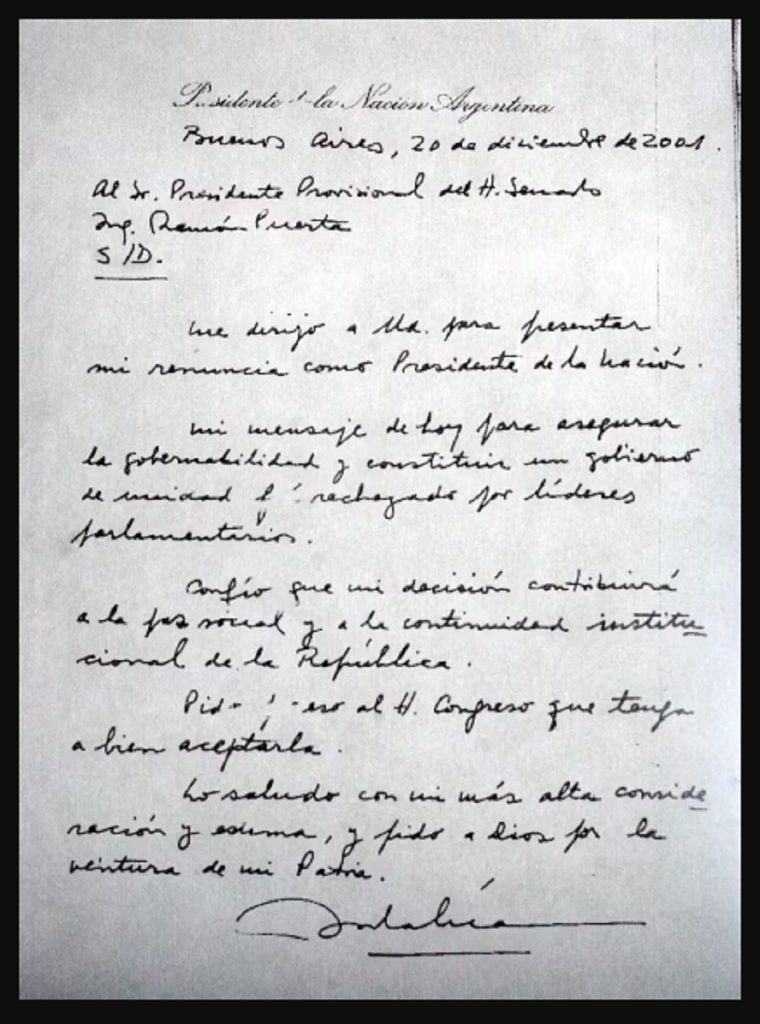 Presidente de la Nación Argentina
Buenos Aires, 20 de diciembre de 2001.
Al Sr. Presidente Provisional del H. Senado
Ing. Ramón Puerta
S/D.
Me dirijo a Ud. para presentar
mi renuncia como Presidente de la Nación.
Mi mensaje de hoy para asegurar
la gobernabilidad y constituir un gobierno
de unidad rechazado por líderes
parlamentarios.
Confío que mi decisión contribuirá
a la paz social y a la continuidad institu
cional de la República.
Pido eso al H. Congreso que tenga
a bien aceptarla.
Lo saludo con mi más alta conside
ración y estima, y pido a Dios por la
ventura de mi Patria.